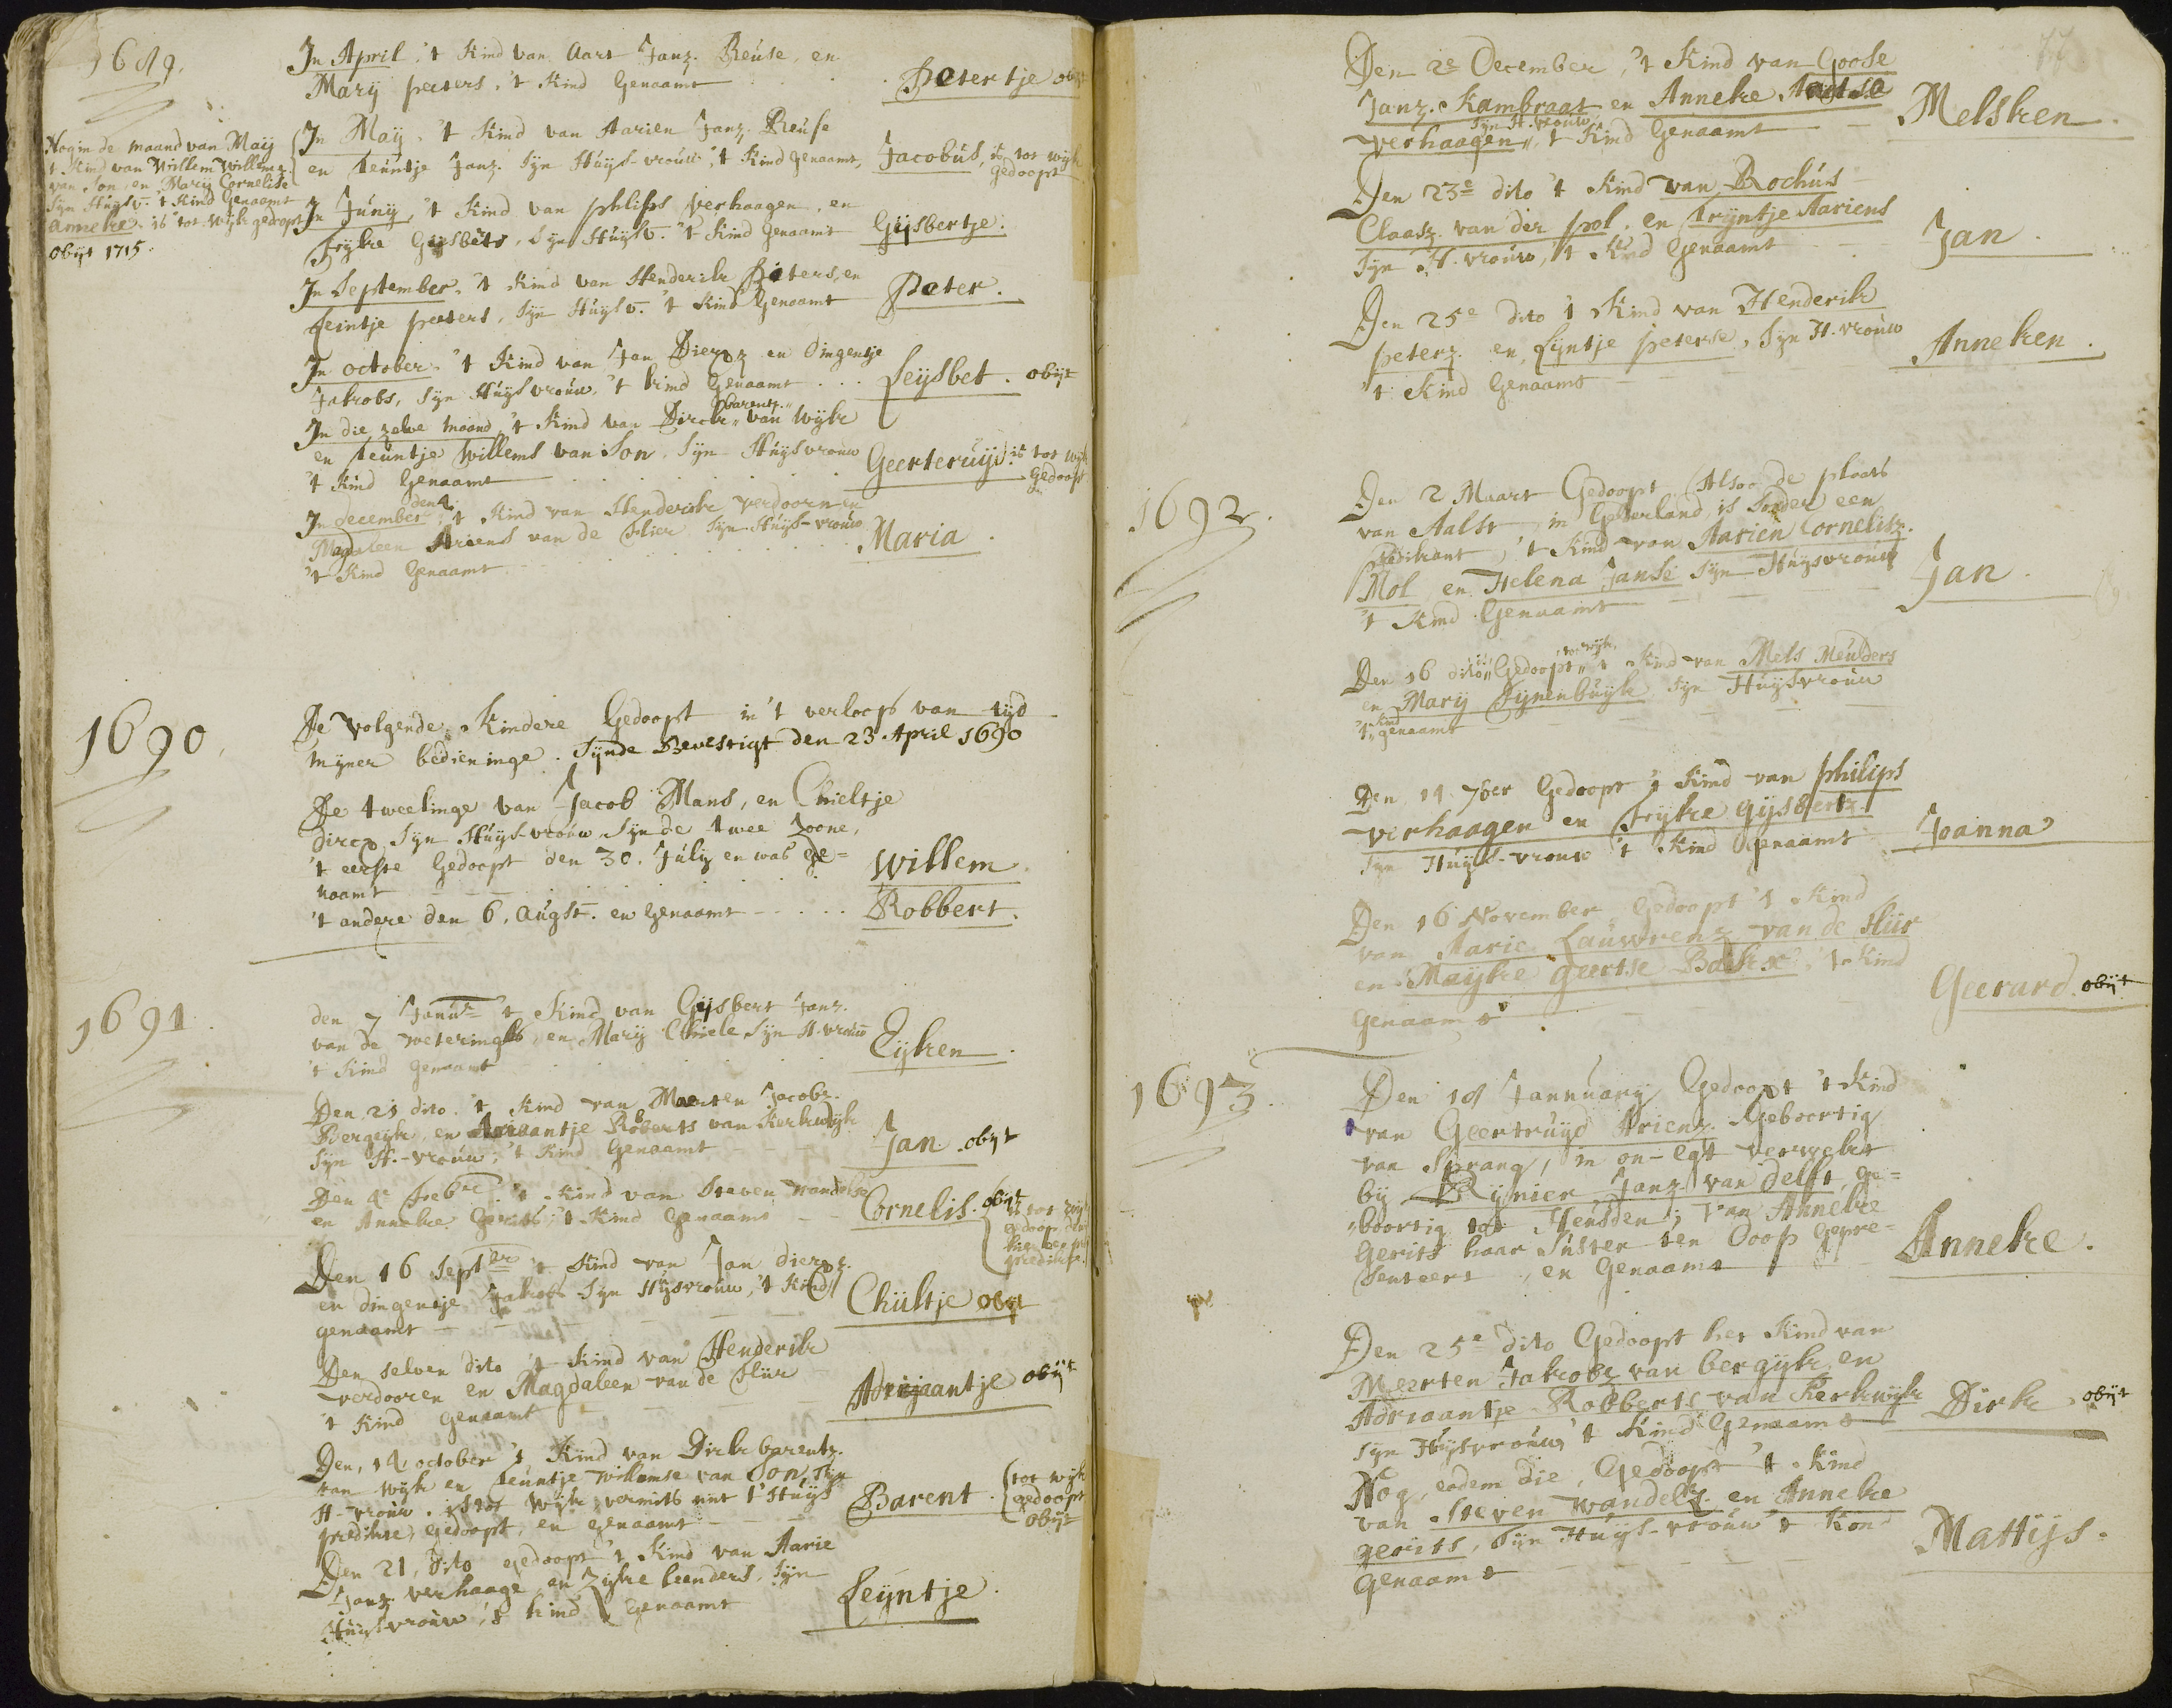 1689.
In April, 't Kind van Aart Janz. Reuse, en
Marij peeters, 't Kind Genaamt . . Petertje obijt
Nog in de maand van Maij
't Kind van Willem Willemz.
van Son, en Marij Cornelise
Sijn Huijsv. 't Kind Genaamt
Anneke. is tot Wijk gedoopt
obijt 1715.
In Maij, 't Kind van Aarien Janz. Reuse
en Teuntje Janz. Sijn Huijs-vrouw, 't Kind genaamt, Jacobus, is tot wijk
gedoopt
In Junij, 't Kind van philips verhaagen, en
Fijke Gijsberts, Sijn Huijsv. 't Kind Genaamt Gijsbertje.
In September, 't Kind van Henderik Piters, en
Leintje peeters, Sijn Huijsv. 't Kind Genaamt Peter.
In october, 't Kind van Jan Diercz en Dingentje
Jakobs, Sijn Huijsvrouw, 't kind Genaamt . . . Leijsbet. obijt
In die zelve maand, 't Kind van Dirck barentz. van Wijk
en Teuntje Willems van Son, Sijn Huijsvrouw
't Kind Genaamt Geerteruijd. is tot wijk
gedoopt
In december den 4 't Kind van Henderik verdoorn en
Magdaleen Ariens van de Slier Sijn Huijs-vrouw
't Kind Genaamt Maria.
1690.
De volgende Kindere Gedoopt in 't verloop van tijd
mijner bedieninge. Sijnde Bevestigt den 23 April 1690
De tweelinge van Jacob Mans, en Chieltje
dircx Sijn Huijs-vrouw Sijnde twee Zoone,
't eerste Gedoopt den 30. Julij en was ge=
naamt Willem.
't andere den 6. Augst. en Genaamt Robbert.
1691.
den 7 Januar. 't Kind van Gijsbert Janz.
van de weteringh, en Marij Chiele Sijn H. vrouw
't Kind Genaamt Eijken.
Den 21 dito. 't Kind van Maerten Jacobz.
Bergeijk, en Ariaantje Roberts van Kerkwijk
Sijn H.-vrouw, 't Kind Genaamt Jan. obijt
Den 4e Febre. 't Kind van Steven wandelse
en Anneke Gerits, 't Kind Genaamt Cornelis. obijt
is tot wijk
gedoopt
Den 16 Septber 't Kind van Jan diercz.
en dingentje Jakobs Sijn Huijsvrouw, 't Kind
genaamt Chiiltje obijt
Den selven dito 't Kind van Henderik
verdooren en Magdaleen van de Sliir
't Kind genaamt Adrijaantje obijt
Den, 14 october 't Kind van Dirk barentz.
van Wijk en Teuntje willemse van Son, Sijn
H-vrouw. is tot Wijk, vermits niet t' Huijs
predikte, gedoopt, en genaamt Barent. tot wijk
gedoopt
obijt
Den 21, dito gedoopt 't Kind van Aarie
Janz. verhaage en Zijke leenders, Sijn
Huijsvrouw, 't kind Genaamt Leijntje.
77
Den 2e December, 't Kind van Goose
Janz. Kambraat en Anneke Aertse
Sijn H. vrouw
verhaagen, 't Kind Genaamt Melsken.
Den 23e dito 't Kind van Rochus
Claasz. van der pol, en Trijntje Aariens
Sijn H. vrouw, 't Kind Genaamt Jan.
Den 25e dito 't Kind van Henderik
peterz. en Lijntje peterse, Sijn H. vrouw
't Kind Genaamt Anneken.
1692.
Den 2 Maart Gedoopt (Alsoo de plaats
van Aalst, in Gelderland, is Sonder een
predikant) 't Kind van Aarien Cornelisz.
Mol, en Helena Janse Sijn Huijsvrouw
't Kind Genaamt Jan.
Den 16 dito is Gedoopt tot wijk 't Kind van Mels Meulders
en Marij Pijnenbuijk Sijn Huijsvrouw
't Kind genaamt
Den 14 7ber Gedoopt 't Kind van philips
verhaagen en Fijke gijsbertz.
Sijn Huijs-vrouw 't Kind Genaamt Joanna
Den 16 November Gedoopt 't Kind
van Aarie Lauwrenz van de Sliir
en Maijke geertse Backx, 't Kind
Genaamt Geerard. obijt
1693.
Den 18 Jannuarij Gedoopt 't Kind
van Geertruijd Arienz. Geboortig
van Sprang, in on-egt verwekt
bij Rijnier Janz. van Delft, ge=
boortig tot Heusden; van Anneke
Gerits haar Suster ten Doop gepre=
senteert, en Genaamt Anneke.
Den 25e dito Gedoopt het Kind van
Meerten Jakobz van bergijk en
Adriaantje Robberts van Kerkwijk
Sijn Huijsvrouw 't Kind Genaamt Dirk. obijt
Nog, eodem die, Gedoopt 't Kind
van Steven wandelz. en Anneke
gerits, Sijn Huijs-vrouw 't Kind
Genaamt Mattijs.